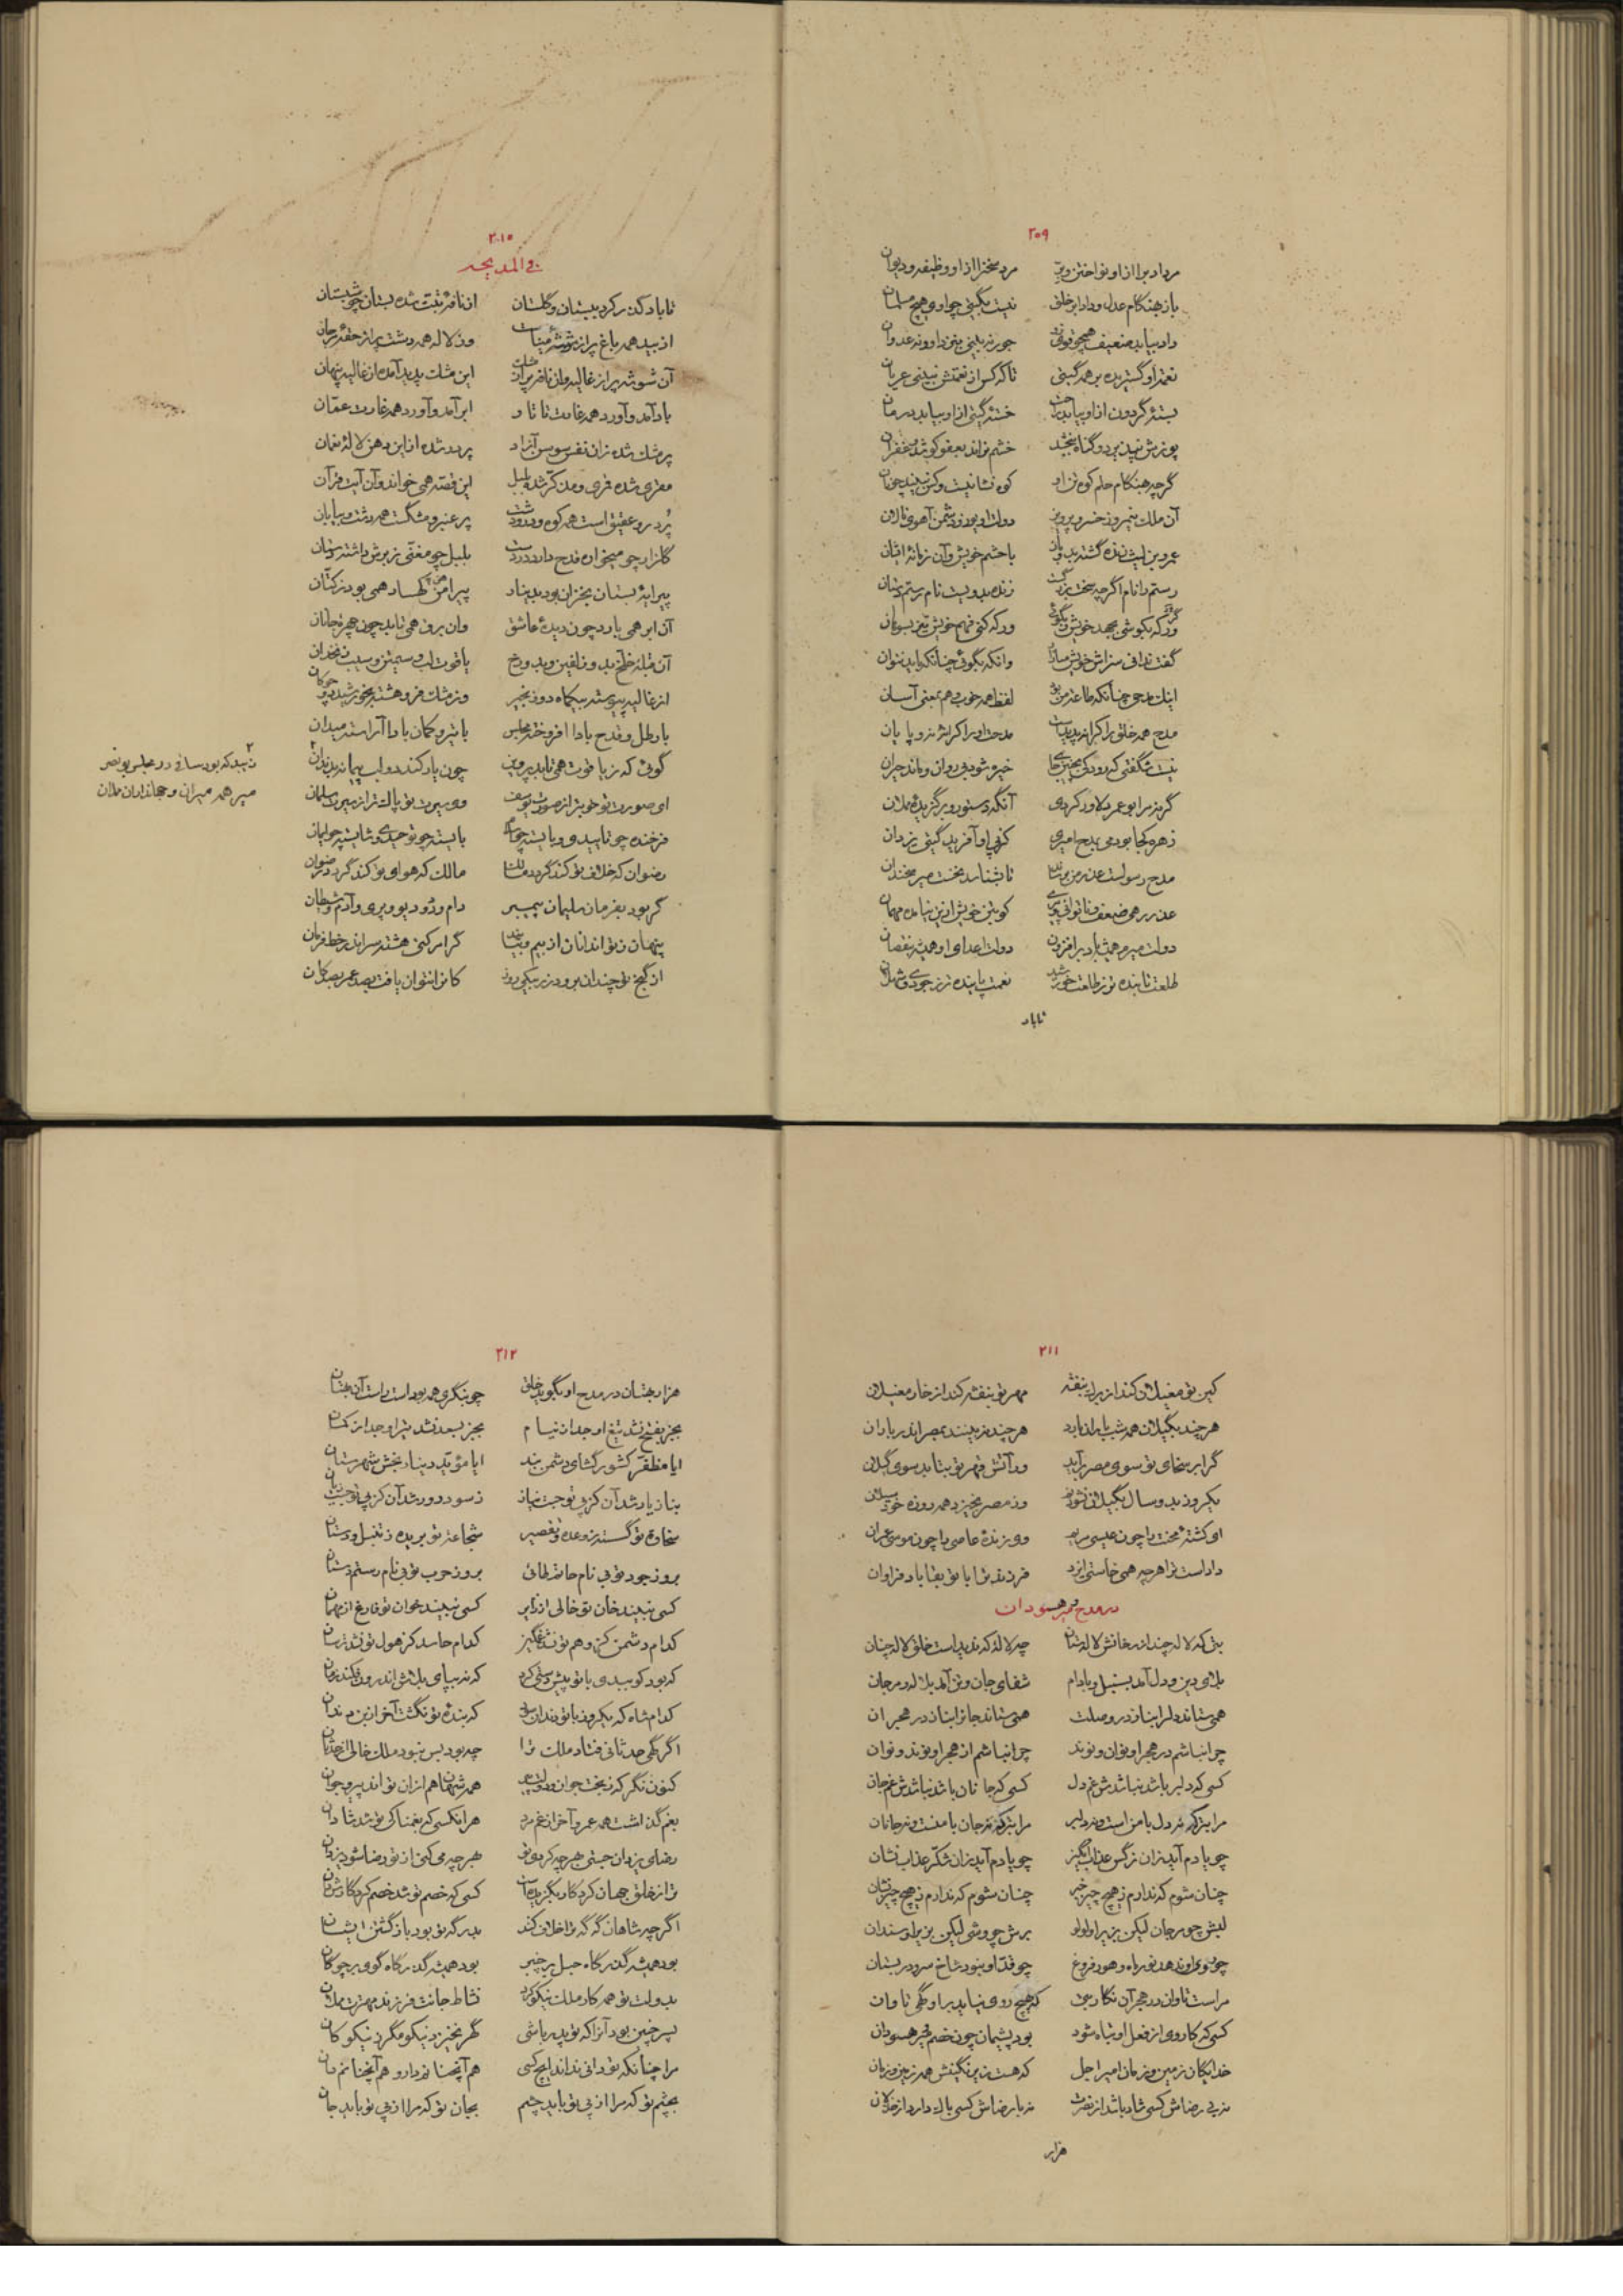 ۲۰۹
مرد ادب را از او نواختن و بر مرد سخن را از او وظیفه و دیوان
باز بهنگام عدل و داد ابر خلق نیست بگیتی چو اوی هیچ مسلمان
داد بیابد ضعیف همچو قوی جور نه بینی بنزد او و نه عدوان
نعمت او گستریده بر همه گیتی تا که کس از نعمتش نبینی عریان
بستهٔ گردون از او بیابد راحت خستهٔ گیتی از او بیابد درمان
پوزش بپذیرد و گناه ببخشد خشم نراند بعفو کوشد و غفران
گرچه بهنگام حلم کوه تن او کوه
آن ملک نیمروز خسرو پیروز دولت او یوز و دشمن آهوی نالان
عمرو بن لیث زنده گشت بدو باز با حشم خویش و آن زمانهٔ ایشان
رستم را نام اگرچه سخت بزرگست زنده بدویست نام رستم دستان
ورکه بکوشی بجهد خویش و بگوئی ورکه کنی فهم خویش تیز بسوهان
گفت ندانی سزاش وانکه بگوئی چنانکه باید نتوان
اینک مدحی چنانکه طاقت من بود لفظ همه خوب و هم بمعنی آسان
مدح همه خلق را کرانه پدیدست مدحت او را کرانه نه و پایان
نیست شگفتی که رودکی بچنین جای خیره شود بی روان و ماند حیران
گرنه مرا بو عمر دلاور کردی آنگه دستور برگزیدهٔ عدنان
زهره کجا بودمی بمدح امیری کز پی او آفرید گیتی یزدان
مدح رسولست عذر من برساند تا بشناسد بحقیقت میر سخندان
عذر رهی ضعف و ناتوانی و پیری کو بتن خویش ازین نیامده مهمان
دولت میرم همیشه باد بر افزون دولت اعدای او همیشه نقصان
طلعت تابنده تر ز طلعت خورشید نعمت پاینده تر ز جودی و ثهلان
تا باد
۲۱۰
فی المدیحه
تا باد گذر کرد ببستان و گلستان از نافهٔ تبت شده بستان چو شبستان
از بید همه باغ پر از شوشهٔ میناست وز لاله همه دشت پر از حقهٔ مرجان
آن شوشه پر از غالیه وان نافه پر از مشک این مشک پدید آمده از غالیه پنهان
باد آمد و آورد همه غارت تاتار ابر آمد و آورد همه غارت عمان
پر مشک شده زان نفس سوسن آزاد پر در شده از این دهن لالهٔ نعمان
مقری شده قمری و مذکر شده بلبل این قصه همی خواند و آن آیت قرآن
پر در و عقیق است همه کوه و در و دشت پر عنبر و مشگست همه دشت و بیابان
گلزار چو میخواره قدح دارد در دست بلبل چو مغنی
پیرایهٔ بستان بخزان بود بدینار پیراهن کهسار همی بود ز کتان
آن ابر همی بارد چون دیدهٔ عاشق وان برق همی تابد چون چهرهٔ جانان
آن قبلهٔ خلخ بد و زلفین و بد و رخ یاقوت لب و سیمتن و سیب زنخدان
از غالیه پیوسته بیکماه دو زنجیر وز مشک فرو هشته بخورشید دو چوگان
با رطل و قدح بادا افروخته مجلس با تیر و کمان بادا آراسته میدان
گوئی که ز یاقوت همی تابد پروین چون باز کند دو لب پیمانه بدندان
ای صورت تو خوبتر از صورت یوسف وی سیرت تو پاکتر از سیرت سلمان
فرخنده چو تأییدی و بایسته چو بایسته چو توحیدی و شایسته چو ایمان
رضوان که خلاف تو کند گردد مالک مالک که هوای تو کند گردد رضوان
گر بود بفرمان سلیمان پیمبر دام و دد و دیو و پری و آدم و شیطان
پنهان ز تو اندانان از بیم گر امر کنی هشته سر اندر خط فرمان
از گنج تو چندان برود زر بیکی روز کانرا نتوان یافت بصد عمر بصد کان
۲ نبید که بود ساقی در مجلس بونصر
میر همه میران و جهاندار مملان
۲۱۱
کین تو مغیلان کند از برگ بنفشه مهر تو بنفشه کند از خار مغیلان
هر چند بگیلان همه شب باران بارد هر چند نه بینند بمصر اندر باران
گر ابر سخای تو سوی مصر برآید ور آتش قهر تو بتابد سوی گیلان
یکروز بدو سال بگیلان وز مصر بخیزد همه روزه
ای کشتهٔ محنت را چون عیسی مریم وی زندهٔ عاصی را چون موسی عمران
داداست ترا هرچه همی خواستی ایزد فرزند ترا با تو بقا باد فراوان
در مدح میر وهسودان
بتی که لاله چند از رخانش لاله ستان چه لاله که ندیداست خلق لاله چنان
بلای دین و دل آمد بسنبل و بادام شفای جان و تن آمد بلاله و مرجان
همی ستاند دلرا بناز در وصلت همی ستاند جانرا بناز در هجران
چرا نباشم در هجر او نوان و نوند چرا نباشم از هجر او نوند و نوان
کسی که دلبر باشد نباشدش غم دل کسی که جانان باشد نباشدش غم جان
مرا بترکه نه دل با من است و نه دلبر مرا بترکه نه جان با منست و نه جانان
چو یادم آید زان نرگس عذاب انگیز چو یادم آید زان شکر عذاب نشان
چنان شوم که ندارم ز هیچ چیز خبر چنان شوم که ندارم ز هیچ چیز نشان
لبش چو مرجان لیکن بزیر او لولو برش چو وشی لیکن بزیر او سندان
چو روی او ندهد نور ماه و هور فروغ چو قد او نبود شاخ سرو در بستان
مراست تاوان در هجر آن نگار که هیچ روی نیابد بر او گهی تاوان
کسی که کار وی از فعل او تباه شود بود پشیمان چون خصم میر وهسودان
خدایگان زمین و زمان امیر اجل که هست زیر نگینش همه زمین و زمان
نه بی رضاش کسی شاد باشد از نصرت نه با رضاش کسی باک دارد از خذلان
هزار
۲۱۲
هزار بهتان در مدح او بگوید خلق چو بنگری همه بوداست راست آن بهتان
بجز بفتح نشد تیغ او جدا ز نیام بجز بسعد نشد تیر او جدا ز کمان
ایا مظفر کشور گشای دشمن بند ایا مؤید دینار بخش شهرستان
بناز یار شد آن کز تو جست نیاز ز سود دور شد آن کز پی تو جست زیان
سخاوت تو گسسته ز وعده و تقصیر شجاعت تو بریده ز تنبل و دستان
بروز جود تو بی نام حاتم طائی بروز حرب تو بی نام رستم دستان
کسی نبیند خان تو خالی از زایر کسی نبیند خوان تو فارغ از مهمان
کدام دشمن کز وهم تو نشد غمگین کدام حاسد کز هول تو نشد ترسان
که بود کو ببدی با تو پیش دستی کرد که نه بپای بلاش اندر اوفکند زمان
کدام شاه که یکروز با تو دندان که بندهٔ تو نگشت آخر از بن دندان
اگر گهی حدثانی فتاد ملک ترا چه بود بس نبود ملک خالی از حدثان
کنون نگر که ز بخت جوان همه شهان هم ازان تواند پیر و جوان
بغم گذاشت همه عمر و آخر از غم مرد هر آنکسی که بغمناکی تو شد شادان
رضای یزدان جستی بهرچه کردی تو بهرچه می کنی از تو رضا شود یزدان
ترا ز خلق جهان کردگار بگزیده است کسی که خصم تو شد خصم کردگارش دان
اگرچه شاهان گه گه ترا خلاف کند بدرگه تو بود بازگشتن ایشان
بود همیشه گذرگاه حبل بر چنبر بود همیشه گذرگاه گوی بر چوگان
بدولت تو همه کار ملک نیکو کرد نشاط جانت فرزند مهترت مملان
پسر چنین بود آنرا که تو پدر باشی گهر نخیزد نیکو مگر ز نیکو کان
مرا چنانکه تو دانی نداند ایچ کسی هم آنچنانم دار و هم آنچنانم دان
بچشم تو که مرا از پی تو باید چشم بجان تو که مرا از پی تو باید جان